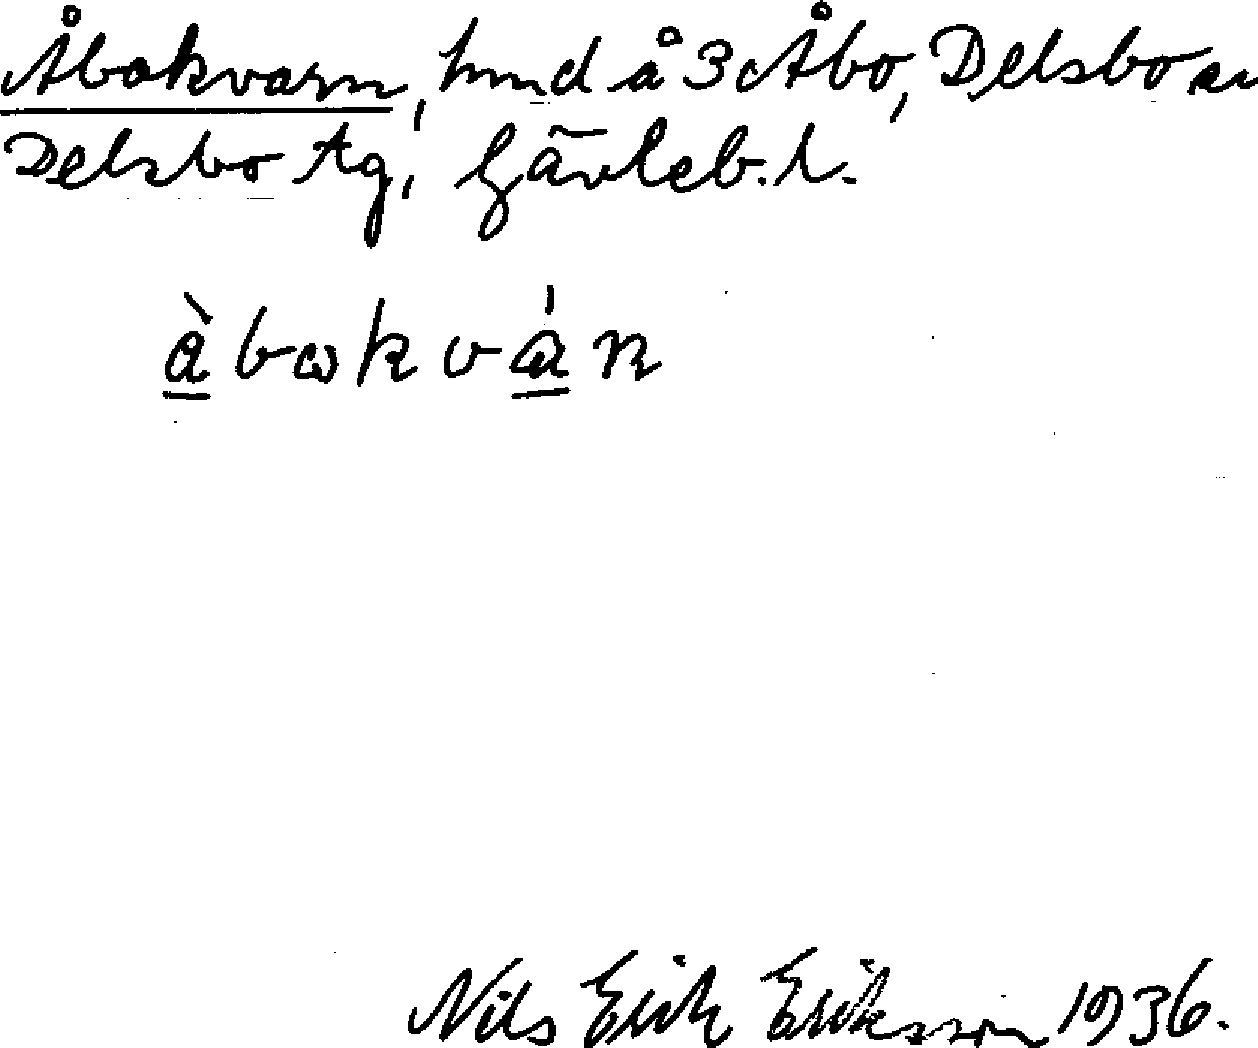 Åbokvarn, lmd å 3 Åbo, Delsbo sn
Delsbo tg, Gävleb. l.
àbωkván
Nils Erik Eriksson 1936.